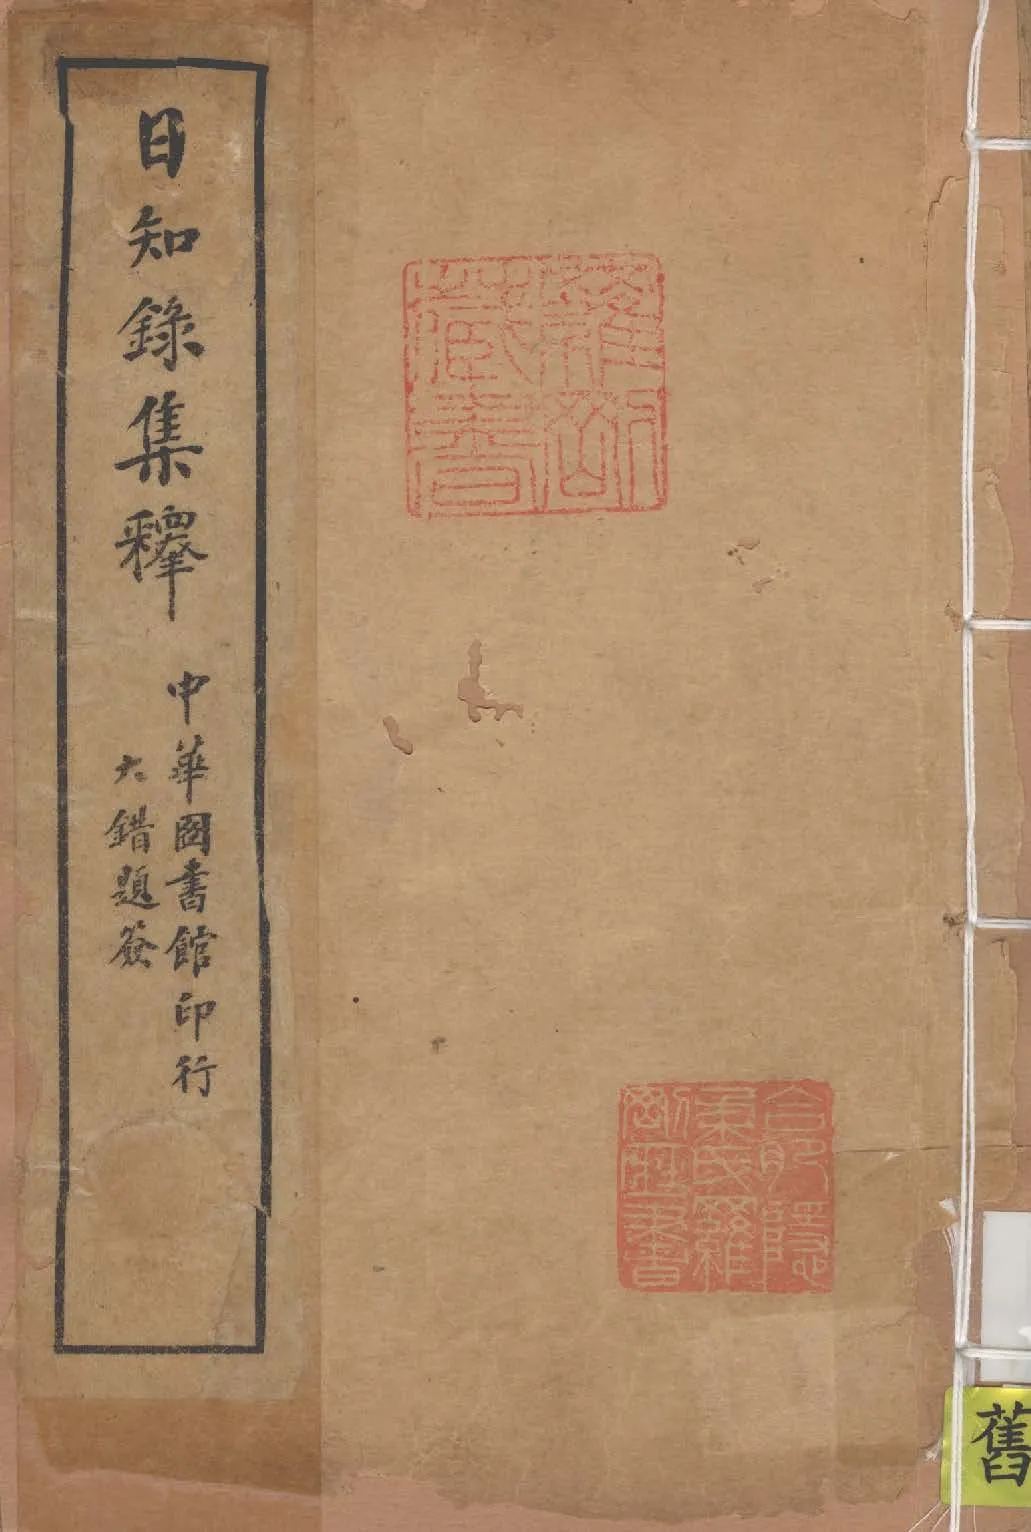 日知錄集釋
中華圖書館印行
大錯題簽
藏書
舊